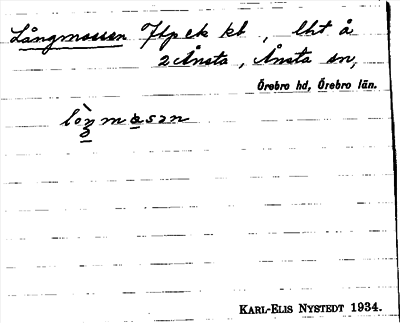 Långmossen Ftp ek kb, lht å
2 Ånsta, Ånsta sn,
Örebro hd, Örebro län.
Karl-Elis Nystedt 1934.